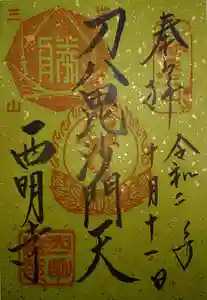 奉拝
令和二年
十一月十一日
刀八毘沙門天
勝
三
山
西明寺